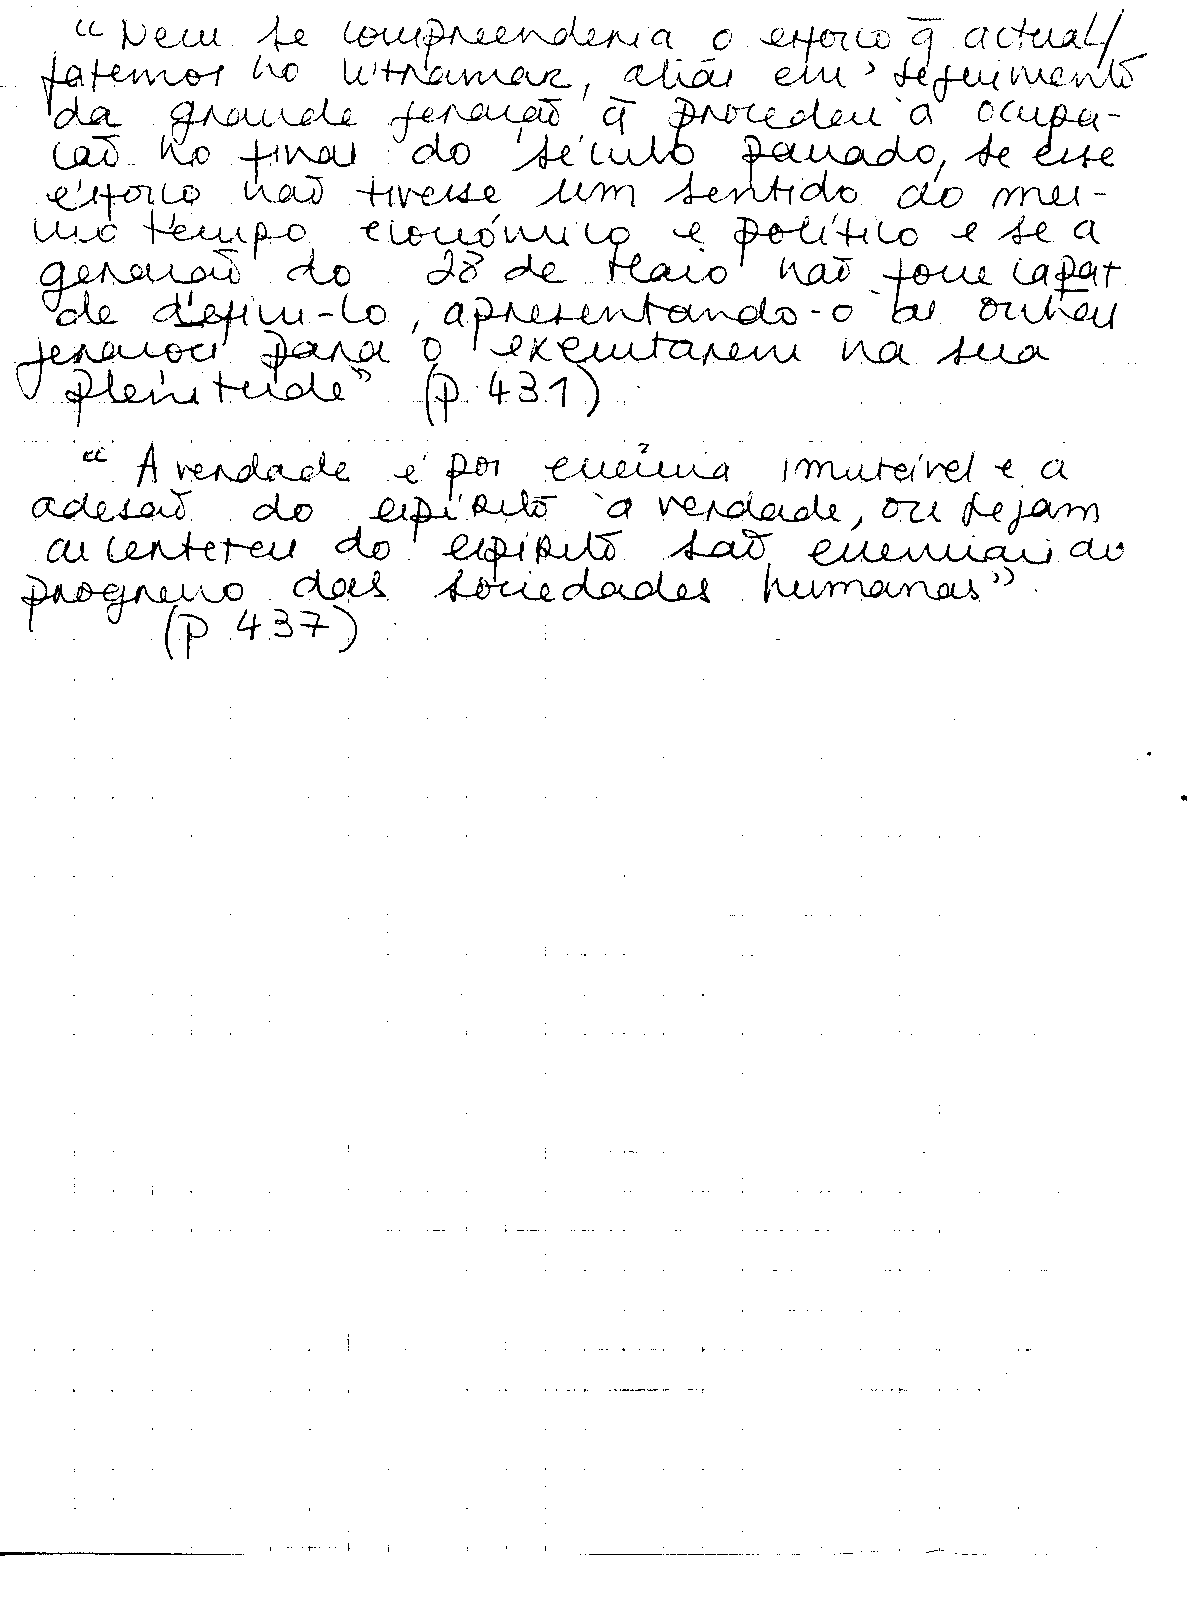 "Nem se compreenderia o esforço q̄ actual/
fazemos no Ultramar, aliás em seguimento
da grande geração q̄ procedeu à ocupa-
ção no final do século passado, se esse
esforço não tivesse um sentido ao mes-
mo tempo económico e político e se a
geração do 28 de Maio não fosse capaz
de defini-lo, apresentando-o às outras
gerações para o executarem na sua
plenitude" (p. 431)
"A verdade é por essência imutável e a
adesão do espírito à verdade, ou sejam
as certezas do espírito são essenciais ao
progresso das sociedades humanas".
(p 437)